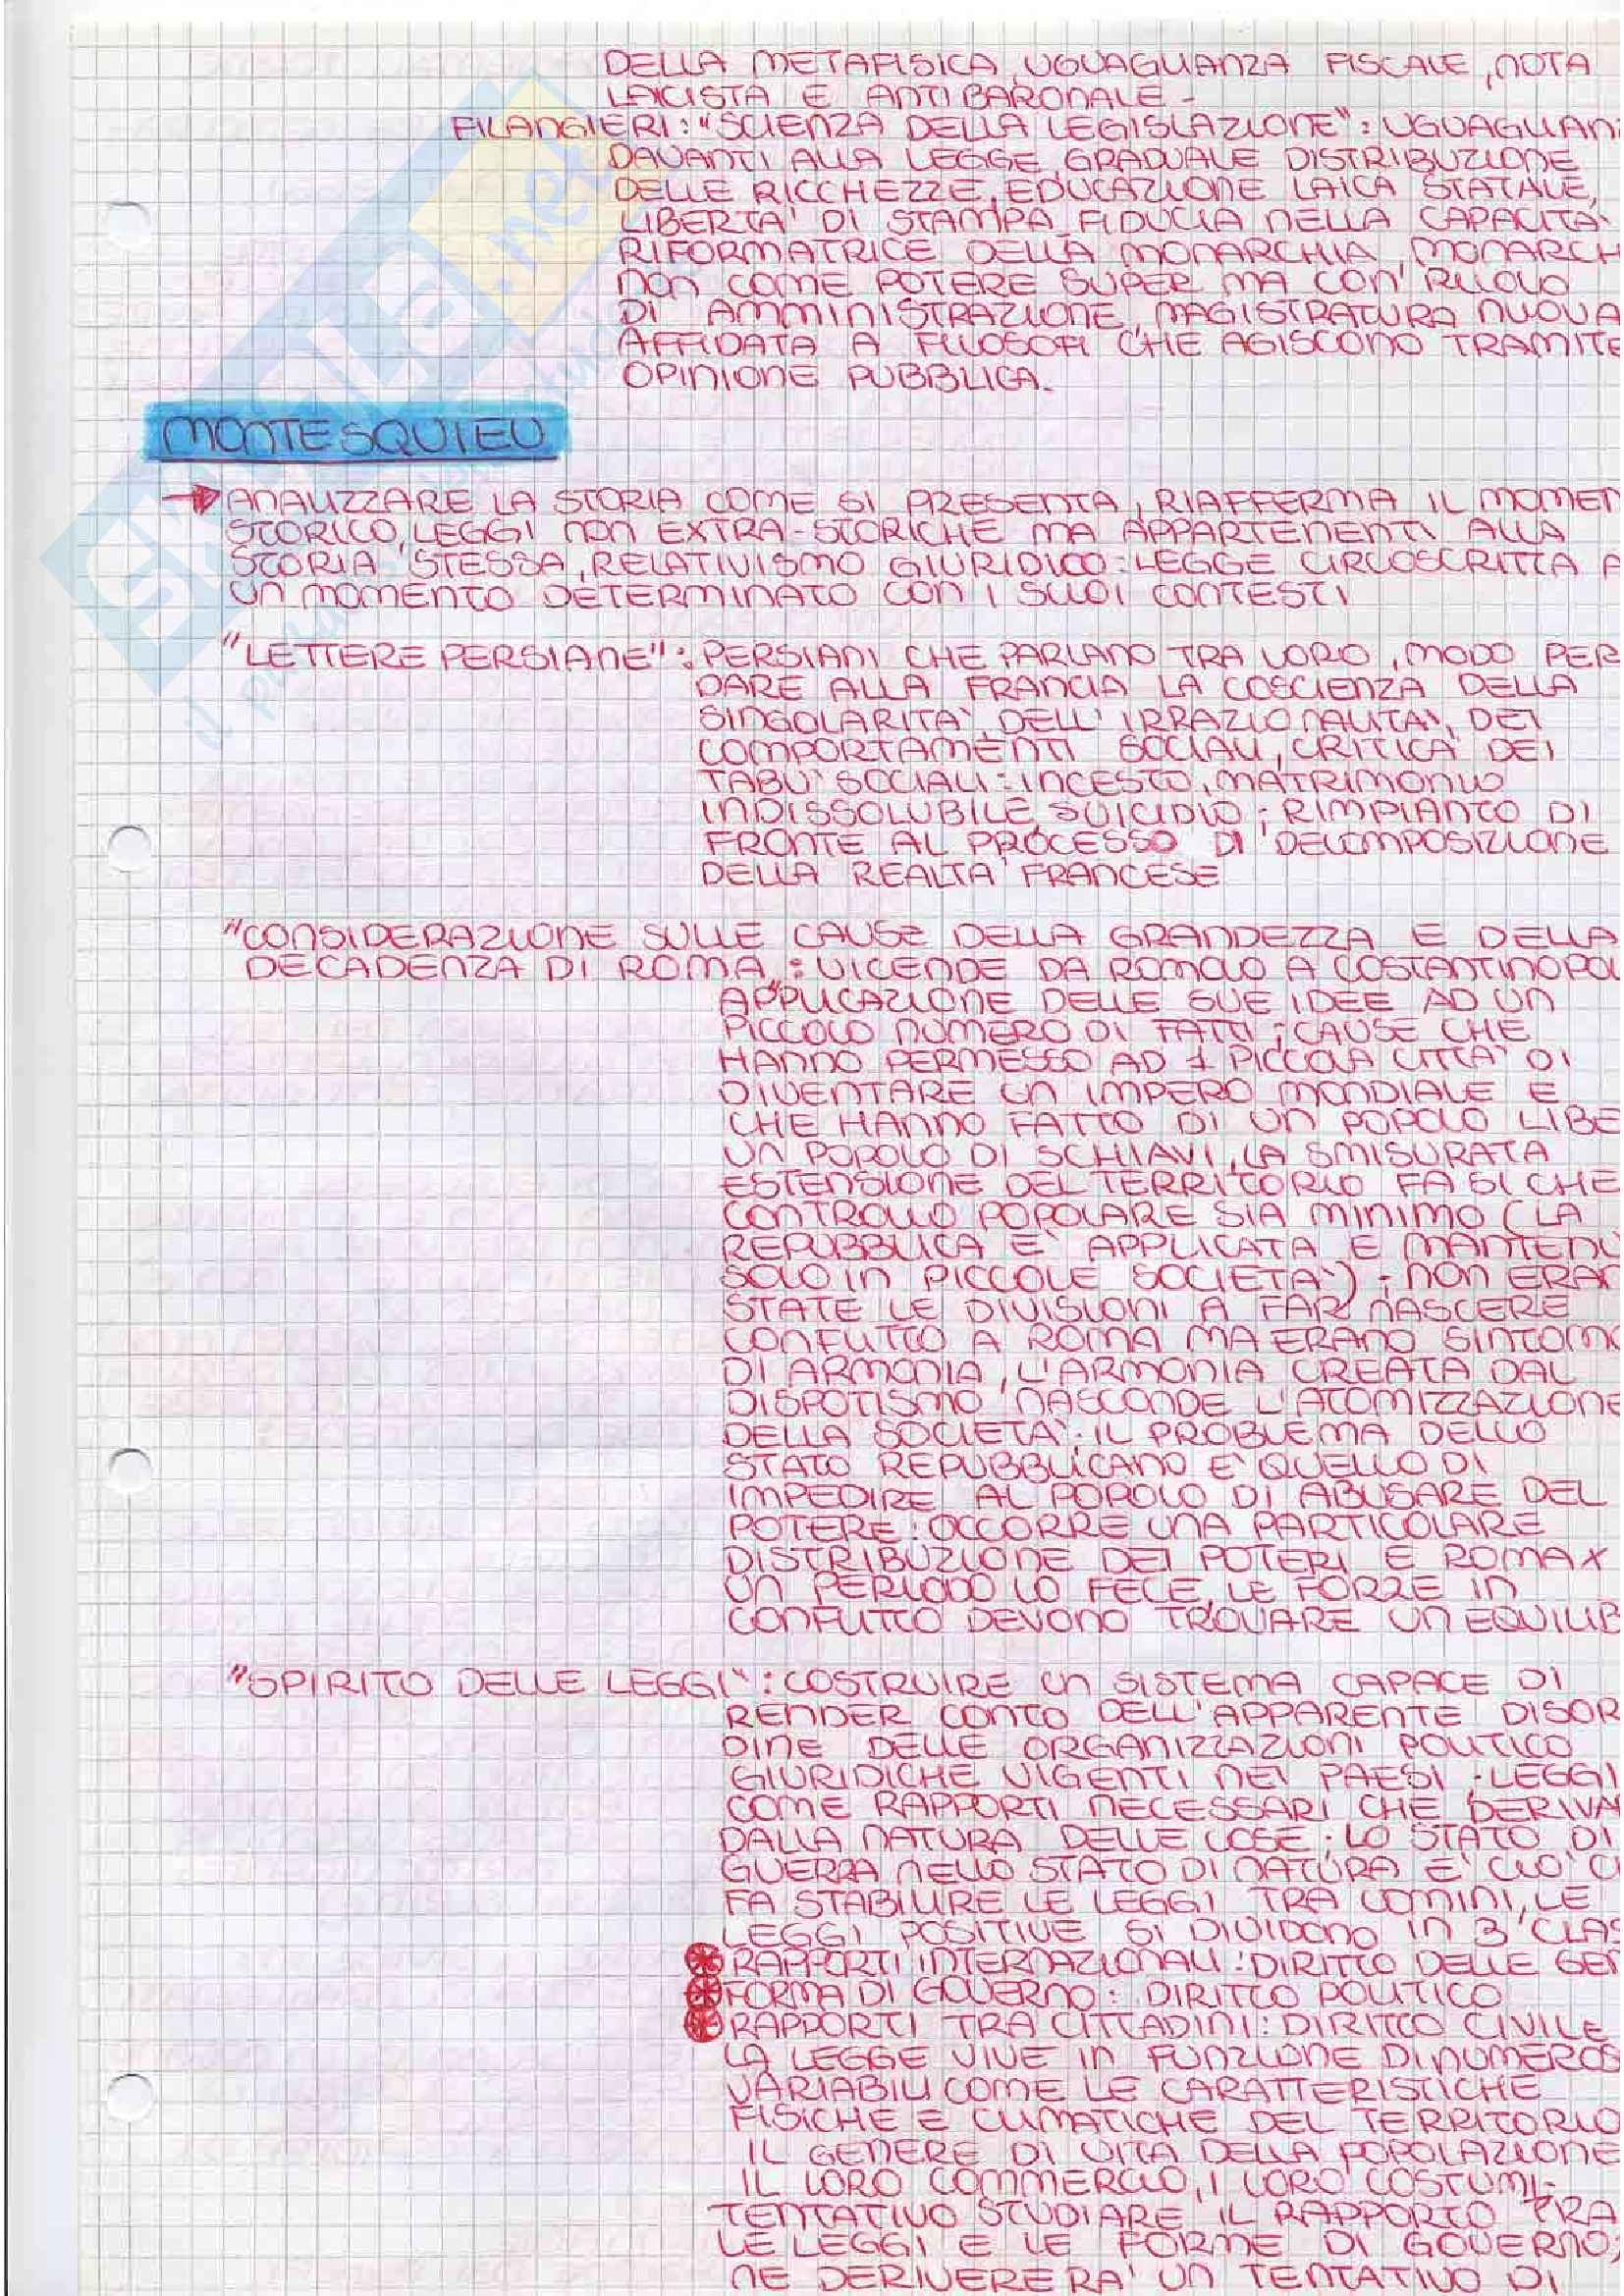 DELLA METAFISICA, UGUAGLIANZA FISCALE, NOTA
LAICISTA E ANTIBARONALE -
FILANGIERI: "SCIENZA DELLA LEGISLAZIONE": UGUAGLIAN
DAVANTI ALLA LEGGE, GRADUALE DISTRIBUZIONE
DELLE RICCHEZZE, EDUCAZIONE LAICA STATALE,
LIBERTA' DI STAMPA, FIDUCIA NELLA CAPACITA'
RIFORMATRICE DELLA MONARCHIA, MONARCH
NON COME POTERE SUPER MA CON RUOLO
DI AMMINISTRAZIONE, MAGISTRATURA NUOVA
AFFIDATA A FILOSOFI CHE AGISCONO TRAMITE
OPINIONE PUBBLICA.
MONTESQUIEU
ANALIZZARE LA STORIA COME SI PRESENTA, RIAFFERMA IL MOMEN
STORICO, LEGGI NON EXTRA-STORICHE MA APPARTENENTI ALLA
STORIA STESSA, RELATIVISMO GIURIDICO: LEGGE CIRCOSCRITTA A
UN MOMENTO DETERMINATO CON I SUOI CONTESTI
"LETTERE PERSIANE": PERSIANI CHE PARLANO TRA LORO, MODO PER
DARE ALLA FRANCIA LA COSCIENZA DELLA
SINGOLARITA', DELL'IRRAZIONALITA', DEI
COMPORTAMENTI SOCIALI, CRITICA DEI
TABU' SOCIALI: INCESTO, MATRIMONIO
INDISSOLUBILE, SUICIDIO; RIMPIANTO DI
FRONTE AL PROCESSO DI DECOMPOSIZIONE
DELLA REALTA' FRANCESE
"CONSIDERAZIONE SULLE CAUSE DELLA GRANDEZZA E DELLA
DECADENZA DI ROMA": VICENDE DA ROMOLO A COSTANTINOPOL
APPLICAZIONE DELLE SUE IDEE AD UN
PICCOLO NUMERO DI FATTI; CAUSE CHE
HANNO PERMESSO AD 1 PICCOLA CITTA' DI
DIVENTARE UN IMPERO MONDIALE E
CHE HANNO FATTO DI UN POPOLO LIBE
UN POPOLO DI SCHIAVI, LA SMISURATA
ESTENSIONE DEL TERRITORIO FA SI CHE
CONTROLLO POPOLARE SIA MINIMO (LA
REPUBBLICA E' APPLICATA E MANTENU
SOLO IN PICCOLE SOCIETA'); NON ERAN
STATE LE DIVISIONI A FAR NASCERE
CONFLITTO A ROMA MA ERANO SINTOMO
DI ARMONIA, L'ARMONIA CREATA DAL
DISPOTISMO NASCONDE L'ATOMIZZAZIONE
DELLA SOCIETA'; IL PROBLEMA DELLO
STATO REPUBBLICANO E' QUELLO DI
IMPEDIRE AL POPOLO DI ABUSARE DEL
POTERE: OCCORRE UNA PARTICOLARE
DISTRIBUZIONE DEI POTERI E ROMA X
UN PERIODO LO FECE, LE FORZE IN
CONFLITTO DEVONO TROVARE UN EQUILIB
"SPIRITO DELLE LEGGI": COSTRUIRE UN SISTEMA CAPACE DI
RENDER CONTO DELL'APPARENTE DISOR
DINE DELLE ORGANIZZAZIONI POLITICO
GIURIDICHE VIGENTI NEI PAESI; LEGGI
COME RAPPORTI NECESSARI CHE DERIVA
DALLA NATURA DELLE COSE; LO STATO DI
GUERRA NELLO STATO DI NATURA E' CIO' C
FA STABILIRE LE LEGGI TRA UOMINI, LE
LEGGI POSITIVE SI DIVIDONO IN 3 CLAS
RAPPORTI INTERNAZIONALI: DIRITTO DELLE GEN
FORMA DI GOVERNO: DIRITTO POLITICO
RAPPORTI TRA CITTADINI: DIRITTO CIVILE
LA LEGGE VIVE IN FUNZIONE DI NUMEROS
VARIABILI COME LE CARATTERISTICHE
FISICHE E CLIMATICHE DEL TERRITORIO
IL GENERE DI VITA DELLA POPOLAZIONE
IL LORO COMMERCIO, I LORO COSTUMI.
TENTATIVO STUDIARE IL RAPPORTO TRA
LE LEGGI E LE FORME DI GOVERNO;
NE DERIVERERA' UN TENTATIVO DI